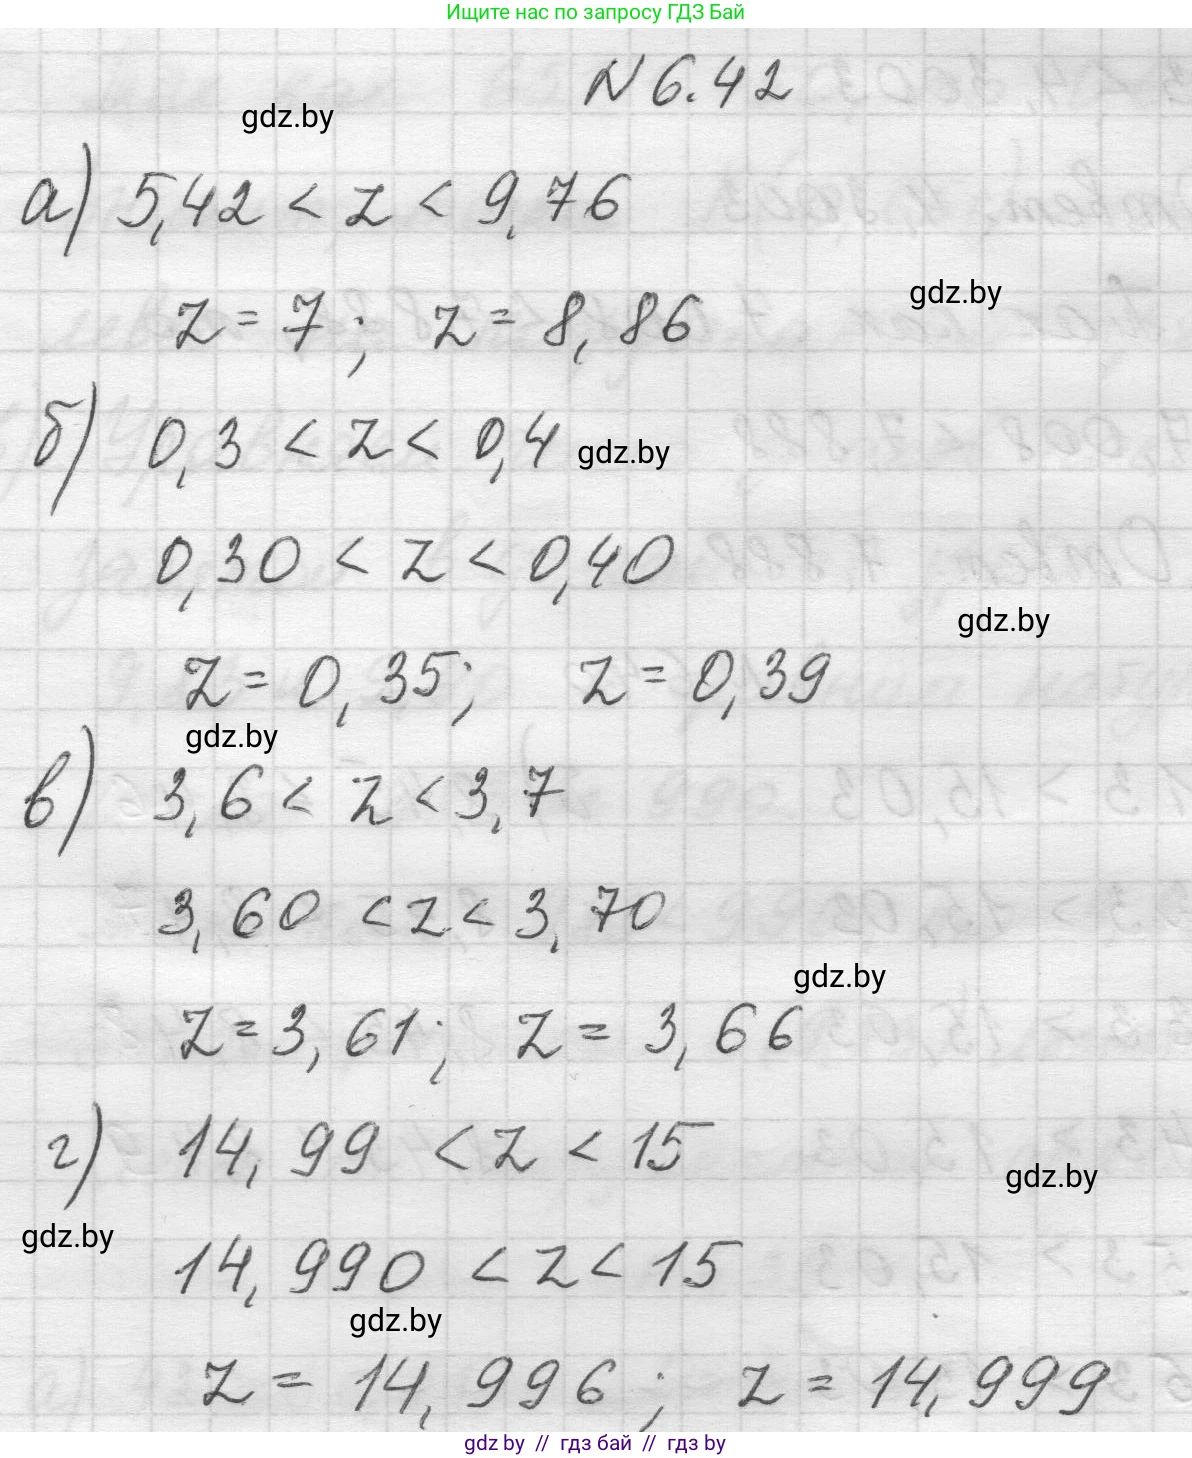 Ищите нас по запросу ГДЗ Бай
N 6.42
gdz.by
а) 5,42 < z < 9,76
gdz.by
z = 7; z = 8,86
б) 0,3 < z < 0,4
gdz.by
0,30 < z < 0,40
gdz.by
z = 0,35; z = 0,39
gdz.by
в) 3,6 < z < 3,7
3,60 < z < 3,70
gdz.by
z = 3,61; z = 3,66
г) 14,99 < z < 15
gdz.by
gdz.by
14,990 < z < 15
gdz.by
z = 14,996; z = 14,999
gdz by // гдз бай // гдз by